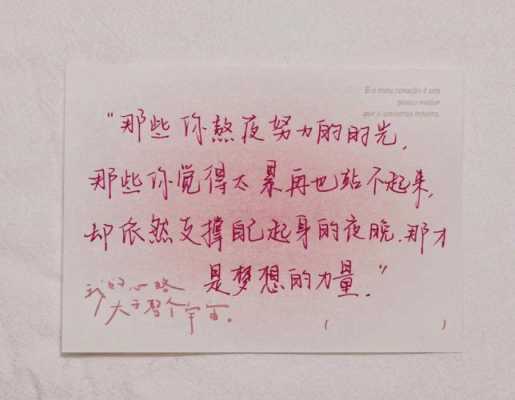 E o meu coração é um
pouco maior
que o universo inteiro.
“那些你熬夜努力的时光,
那些你觉得太累再也站不起来,
却依然支撑自己起身的夜晚.那才
是梦想的力量.”
我的心略
大于整个宇宙。
( )